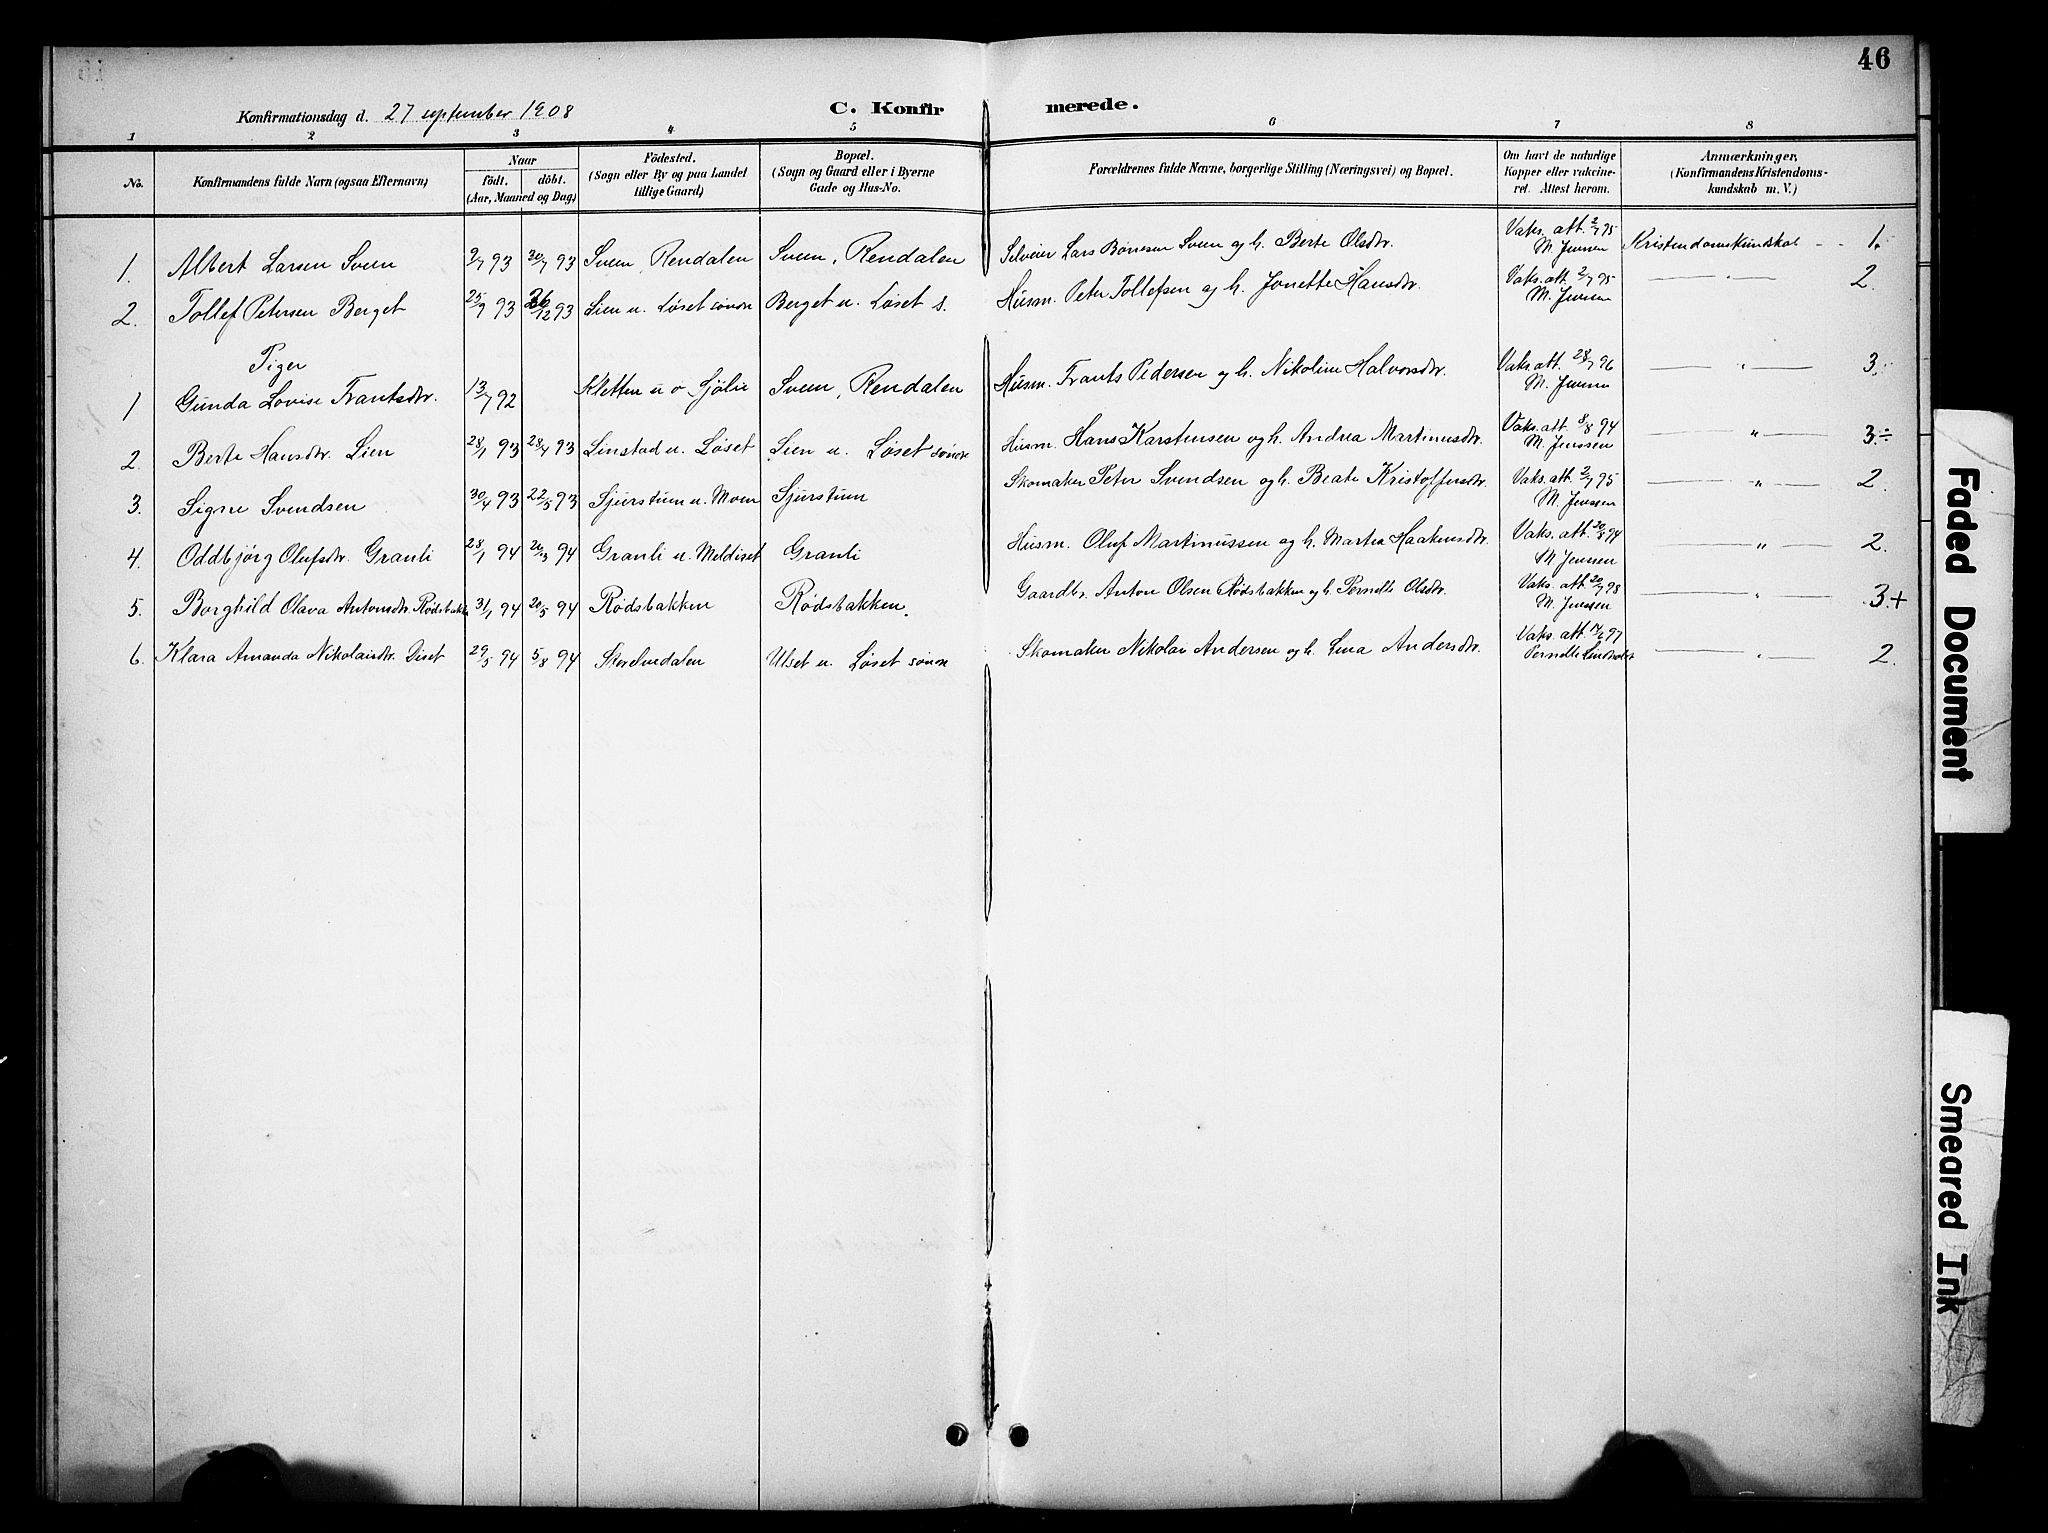 46
Konfirmationsdag d. 27 september 1908
C. Konfirmerede.
1 2 3 4 5 6 7 8
No.
Konfirmandens fulde Navn (ogsaa Efternavn)
Naar
födt. döbt.
(Aar, Maaned og Dag)
Födested.
(Sogn eller By og paa Landet
tillige Gaard)
Bopæl.
(Sogn og Gaard eller i Byerne
Gade og Hus-No.
Forældrenes fulde Navne, borgerlige Stilling (Næringsvei) og Bopæl.
Om havt de naturlige
Kopper eller vakcine-
ret. Attest herom.
Anmærkninger,
(Konfirmandens Kristendoms-
kundskab m. V.)
1. Albert Larsen Sveen 2/7 93 30/7 93 Sveen, Rendalen Sveen, Rendalen Selveier Lars Bønesen Sveen og h. Berte Olsdtr. Vaks. att. 2/7 95 M. Jenssen Kristendomskundskab - - 1.
2. Tollef Petersen Berget 25/9 93 26/12 93 Lien u. Løset søndre Berget u. Løset s. Husm. Peter Tollefsen og h. Jonette Hansdtr. Vaks. att. 2/7 95 M. Jenssen — " — 2.
Piger
1 Gunda Lovise Frantsdtr. 13/7 92 Kletten u. o Sjølie Sveen, Rendalen Husm. Frants Pedersen og h. Nikoline Halvorsdtr. Vaks. att. 28/7 96 M. Jenssen — " — 3.
2. Berte Hansdtr. Lien 28/1 93 28/4 93 Linstad u. Løset Lien u. Løset søndre Husm. Hans Karstensen og h. Andrea Martinusdtr. Vaks. att. 8/8 94 M. Jenssen — " — 3.÷
3. Signe Svendsen 30/4 93 22/5 93 Sjurstuen u. Moen Sjurstuen Skomaker Peter Svendsen og h. Beate Kristoffersdtr. Vaks. att. 2/7 95 M. Jenssen — " — 2.
4. Oddbjörg Olufsdtr. Granli 28/1 94 26/3 94 Granli u. Meldiset Granli Husm. Oluf Martinussen og h. Martea Haakensdtr. Vaks. att. 20/8 94 M Jenssen — " — 2.
5. Borghild Olava Antonsdtr. Rødsbakken 31/1 94 20/5 94 Rødsbakken Rødsbakken. Gaardbr. Anton Olsen Rødsbakken og h. Pernelle Olsdtr. Vaks. att. 20/7 98 M. Jenssen — " — 3.+
6. Klara Amanda Nikolaisdtr. Diset 29/5 94 5/8 94 Storelvedalen Ulset u. Løset søndre Skomaker Nikolai Andersen og h. Lina Andersdtr. Vaks. att. 14/6 97 Pernelle — " — 2.
Faded Document
Smeared Ink